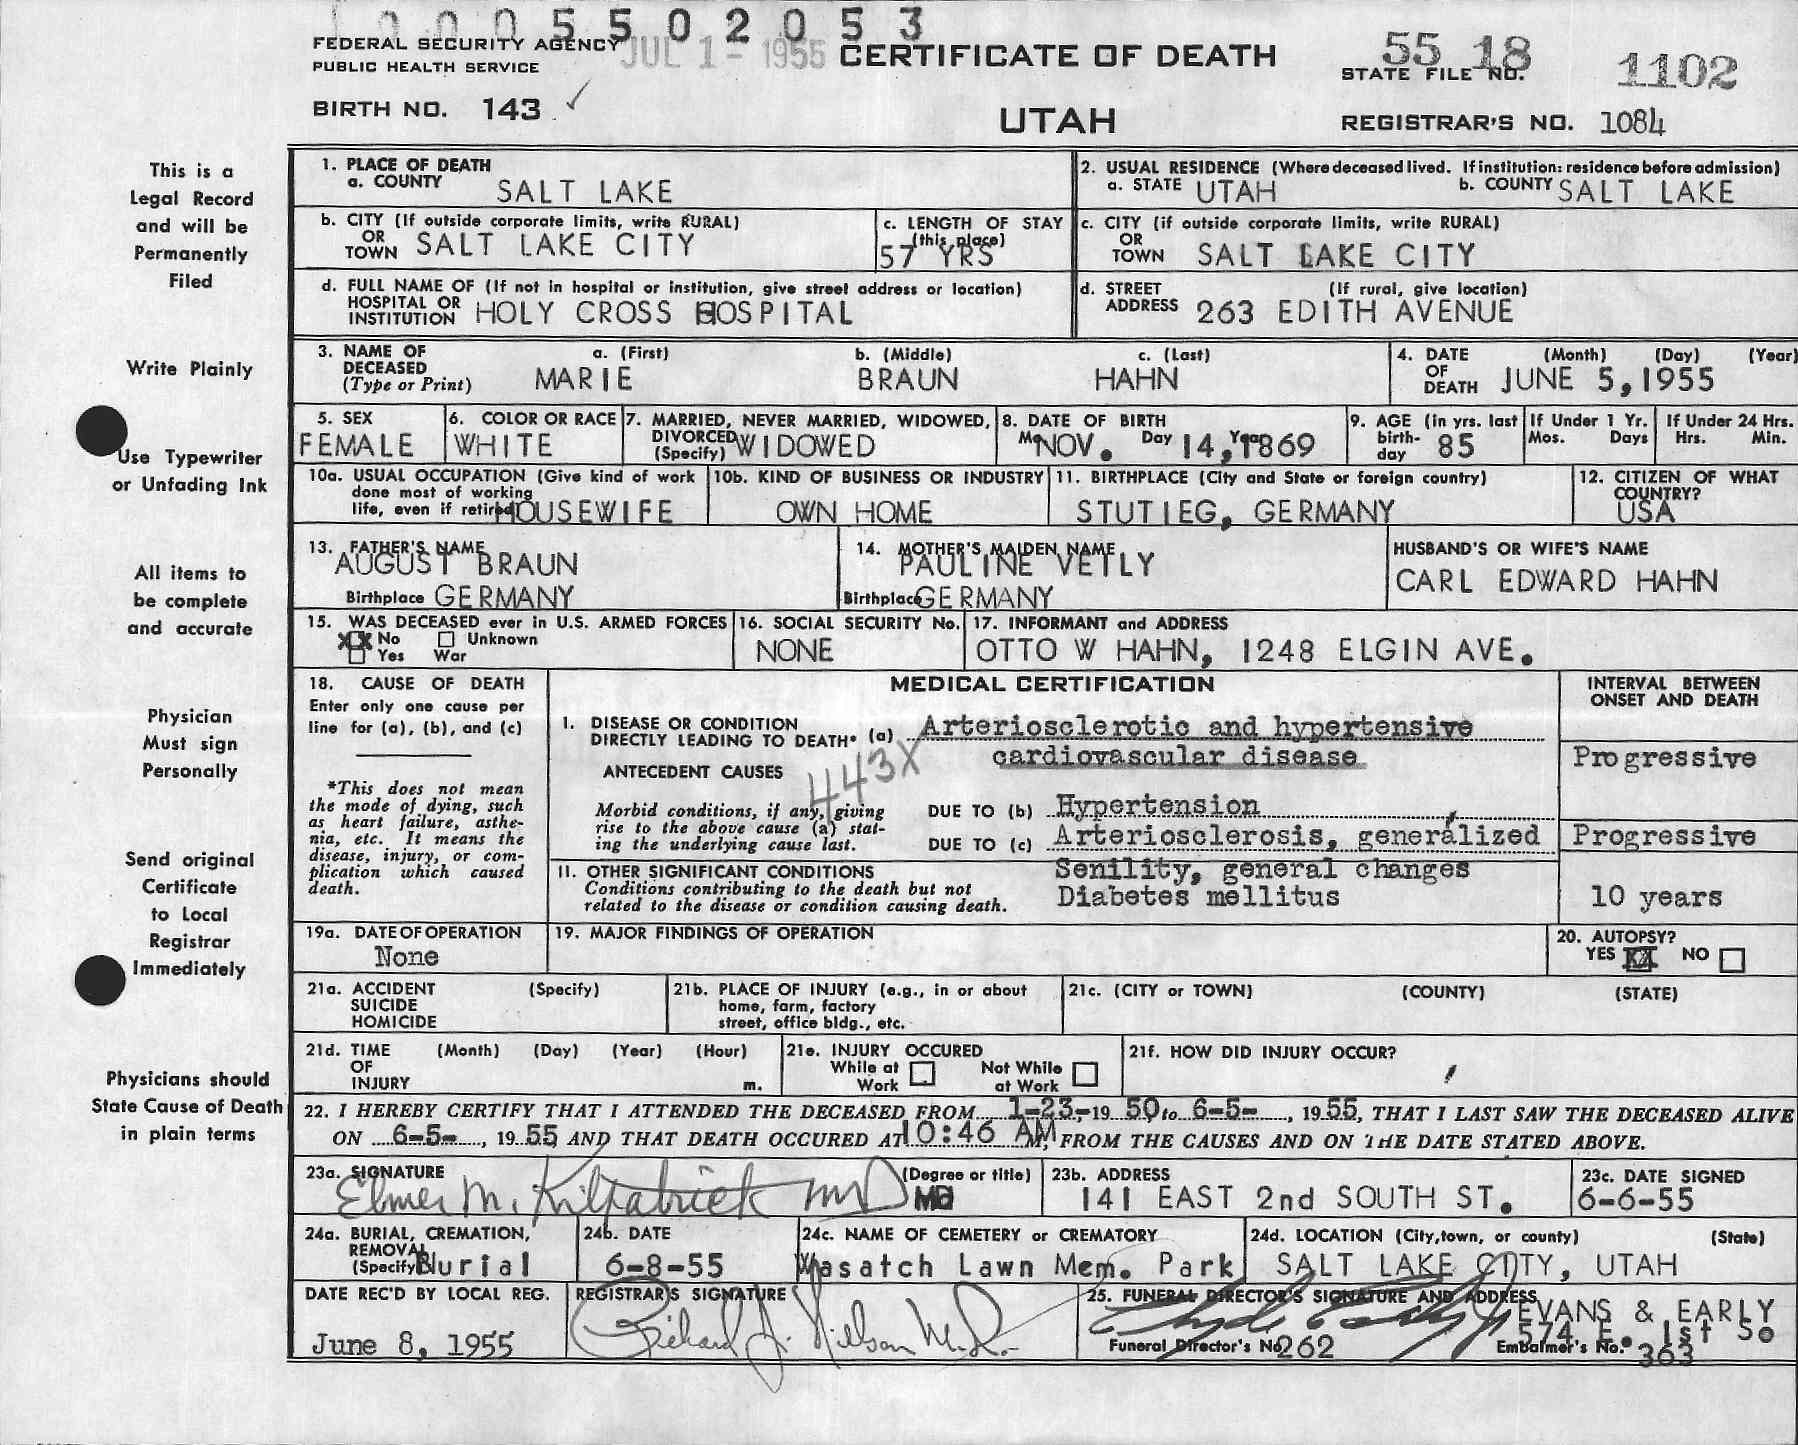 0005502053
FEDERAL SECURITY AGENCY JUL 1 - 1955 CERTIFICATE OF DEATH 55 18 1102
PUBLIC HEALTH SERVICE STATE FILE NO.
BIRTH NO. 143 ✓ UTAH REGISTRAR'S NO. 1084
This is a
Legal Record
and will be
Permanently
Filed
Write Plainly
Use Typewriter
or Unfading Ink
All items to
be complete
and accurate
Physician
Must sign
Personally
Send original
Certificate
to Local
Registrar
Immediately
Physicians should
State Cause of Death
in plain terms
1. PLACE OF DEATH
a. COUNTY SALT LAKE
2. USUAL RESIDENCE (Where deceased lived. If institution: residence before admission)
a. STATE UTAH b. COUNTY SALT LAKE
b. CITY (If outside corporate limits, write RURAL)
OR
TOWN SALT LAKE CITY
c. LENGTH OF STAY
(this place)
57 YRS
c. CITY (if outside corporate limits, write RURAL)
OR
TOWN SALT LAKE CITY
d. FULL NAME OF (If not in hospital or institution, give street address or location)
HOSPITAL OR
INSTITUTION HOLY CROSS HOSPITAL
d. STREET (If rural, give location)
ADDRESS 263 EDITH AVENUE
3. NAME OF a. (First) b. (Middle) c. (Last)
DECEASED
(Type or Print) MARIE BRAUN HAHN
4. DATE (Month) (Day) (Year)
OF
DEATH JUNE 5, 1955
5. SEX
FEMALE
6. COLOR OR RACE
WHITE
7. MARRIED, NEVER MARRIED, WIDOWED,
DIVORCED
(Specify) WIDOWED
8. DATE OF BIRTH
NOV. Day 14, 1869
9. AGE (in yrs. last
birth-
day 85
If Under 1 Yr.
Mos. Days
If Under 24 Hrs.
Hrs. Min.
10a. USUAL OCCUPATION (Give kind of work
done most of working
life, even if retired HOUSEWIFE
10b. KIND OF BUSINESS OR INDUSTRY
OWN HOME
11. BIRTHPLACE (City and State or foreign country)
STUTIEG, GERMANY
12. CITIZEN OF WHAT
COUNTRY?
USA
13. FATHER'S NAME
AUGUST BRAUN
Birthplace GERMANY
14. MOTHER'S MAIDEN NAME
PAULINE VETLY
Birthplace GERMANY
HUSBAND'S OR WIFE'S NAME
CARL EDWARD HAHN
15. WAS DECEASED ever in U.S. ARMED FORCES
XX No Unknown
Yes War
16. SOCIAL SECURITY No.
NONE
17. INFORMANT and ADDRESS
OTTO W HAHN, 1248 ELGIN AVE.
18. CAUSE OF DEATH
Enter only one cause per
line for (a), (b), and (c)
*This does not mean
the mode of dying, such
as heart failure, asthe-
nia, etc. It means the
disease, injury, or com-
plication which caused
death.
MEDICAL CERTIFICATION
INTERVAL BETWEEN
ONSET AND DEATH
I. DISEASE OR CONDITION
DIRECTLY LEADING TO DEATH* (a) Arteriosclerotic and hypertensive
cardiovascular disease Progressive
ANTECEDENT CAUSES 443X
Morbid conditions, if any, giving
rise to the above cause (a) stat-
ing the underlying cause last.
DUE TO (b) Hypertension
DUE TO (c) Arteriosclerosis, generalized Progressive
II. OTHER SIGNIFICANT CONDITIONS
Conditions contributing to the death but not
related to the disease or condition causing death.
Senility, general changes
Diabetes mellitus 10 years
19a. DATE OF OPERATION
None
19. MAJOR FINDINGS OF OPERATION
20. AUTOPSY?
YES XX NO
21a. ACCIDENT (Specify)
SUICIDE
HOMICIDE
21b. PLACE OF INJURY (e.g., in or about
home, farm, factory
street, office bldg., etc.
21c. (CITY or TOWN) (COUNTY) (STATE)
21d. TIME (Month) (Day) (Year) (Hour)
OF
INJURY m.
21e. INJURY OCCURED
While at Not While
Work at Work
21f. HOW DID INJURY OCCUR?
22. I HEREBY CERTIFY THAT I ATTENDED THE DECEASED FROM 1-23-19 50 to 6-5-, 1955, THAT I LAST SAW THE DECEASED ALIVE
ON 6-5-, 19 55 AND THAT DEATH OCCURED AT 10:46 AM, FROM THE CAUSES AND ON THE DATE STATED ABOVE.
23a. SIGNATURE (Degree or title)
Elmer M. Kilpatrick MD MD
23b. ADDRESS
141 EAST 2nd SOUTH ST.
23c. DATE SIGNED
6-6-55
24a. BURIAL, CREMATION,
REMOVAL
(Specify) Burial
24b. DATE
6-8-55
24c. NAME OF CEMETERY or CREMATORY
Wasatch Lawn Mem. Park
24d. LOCATION (City, town, or county) (State)
SALT LAKE CITY, UTAH
DATE REC'D BY LOCAL REG.
June 8, 1955
REGISTRAR'S SIGNATURE
Richard J. Nilson M.D.
25. FUNERAL DIRECTOR'S SIGNATURE AND ADDRESS
EVANS & EARLY
574 E. 1st So
Funeral Director's No 262 Embalmer's No. 363